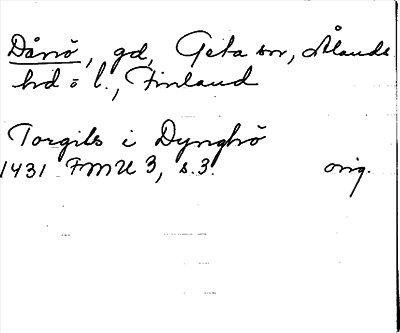 Dånö, gd, Geta sn, Ålands
hd o l., Finland
Torgils i Dynghö
1431 FMU 3, s. 3. orig.